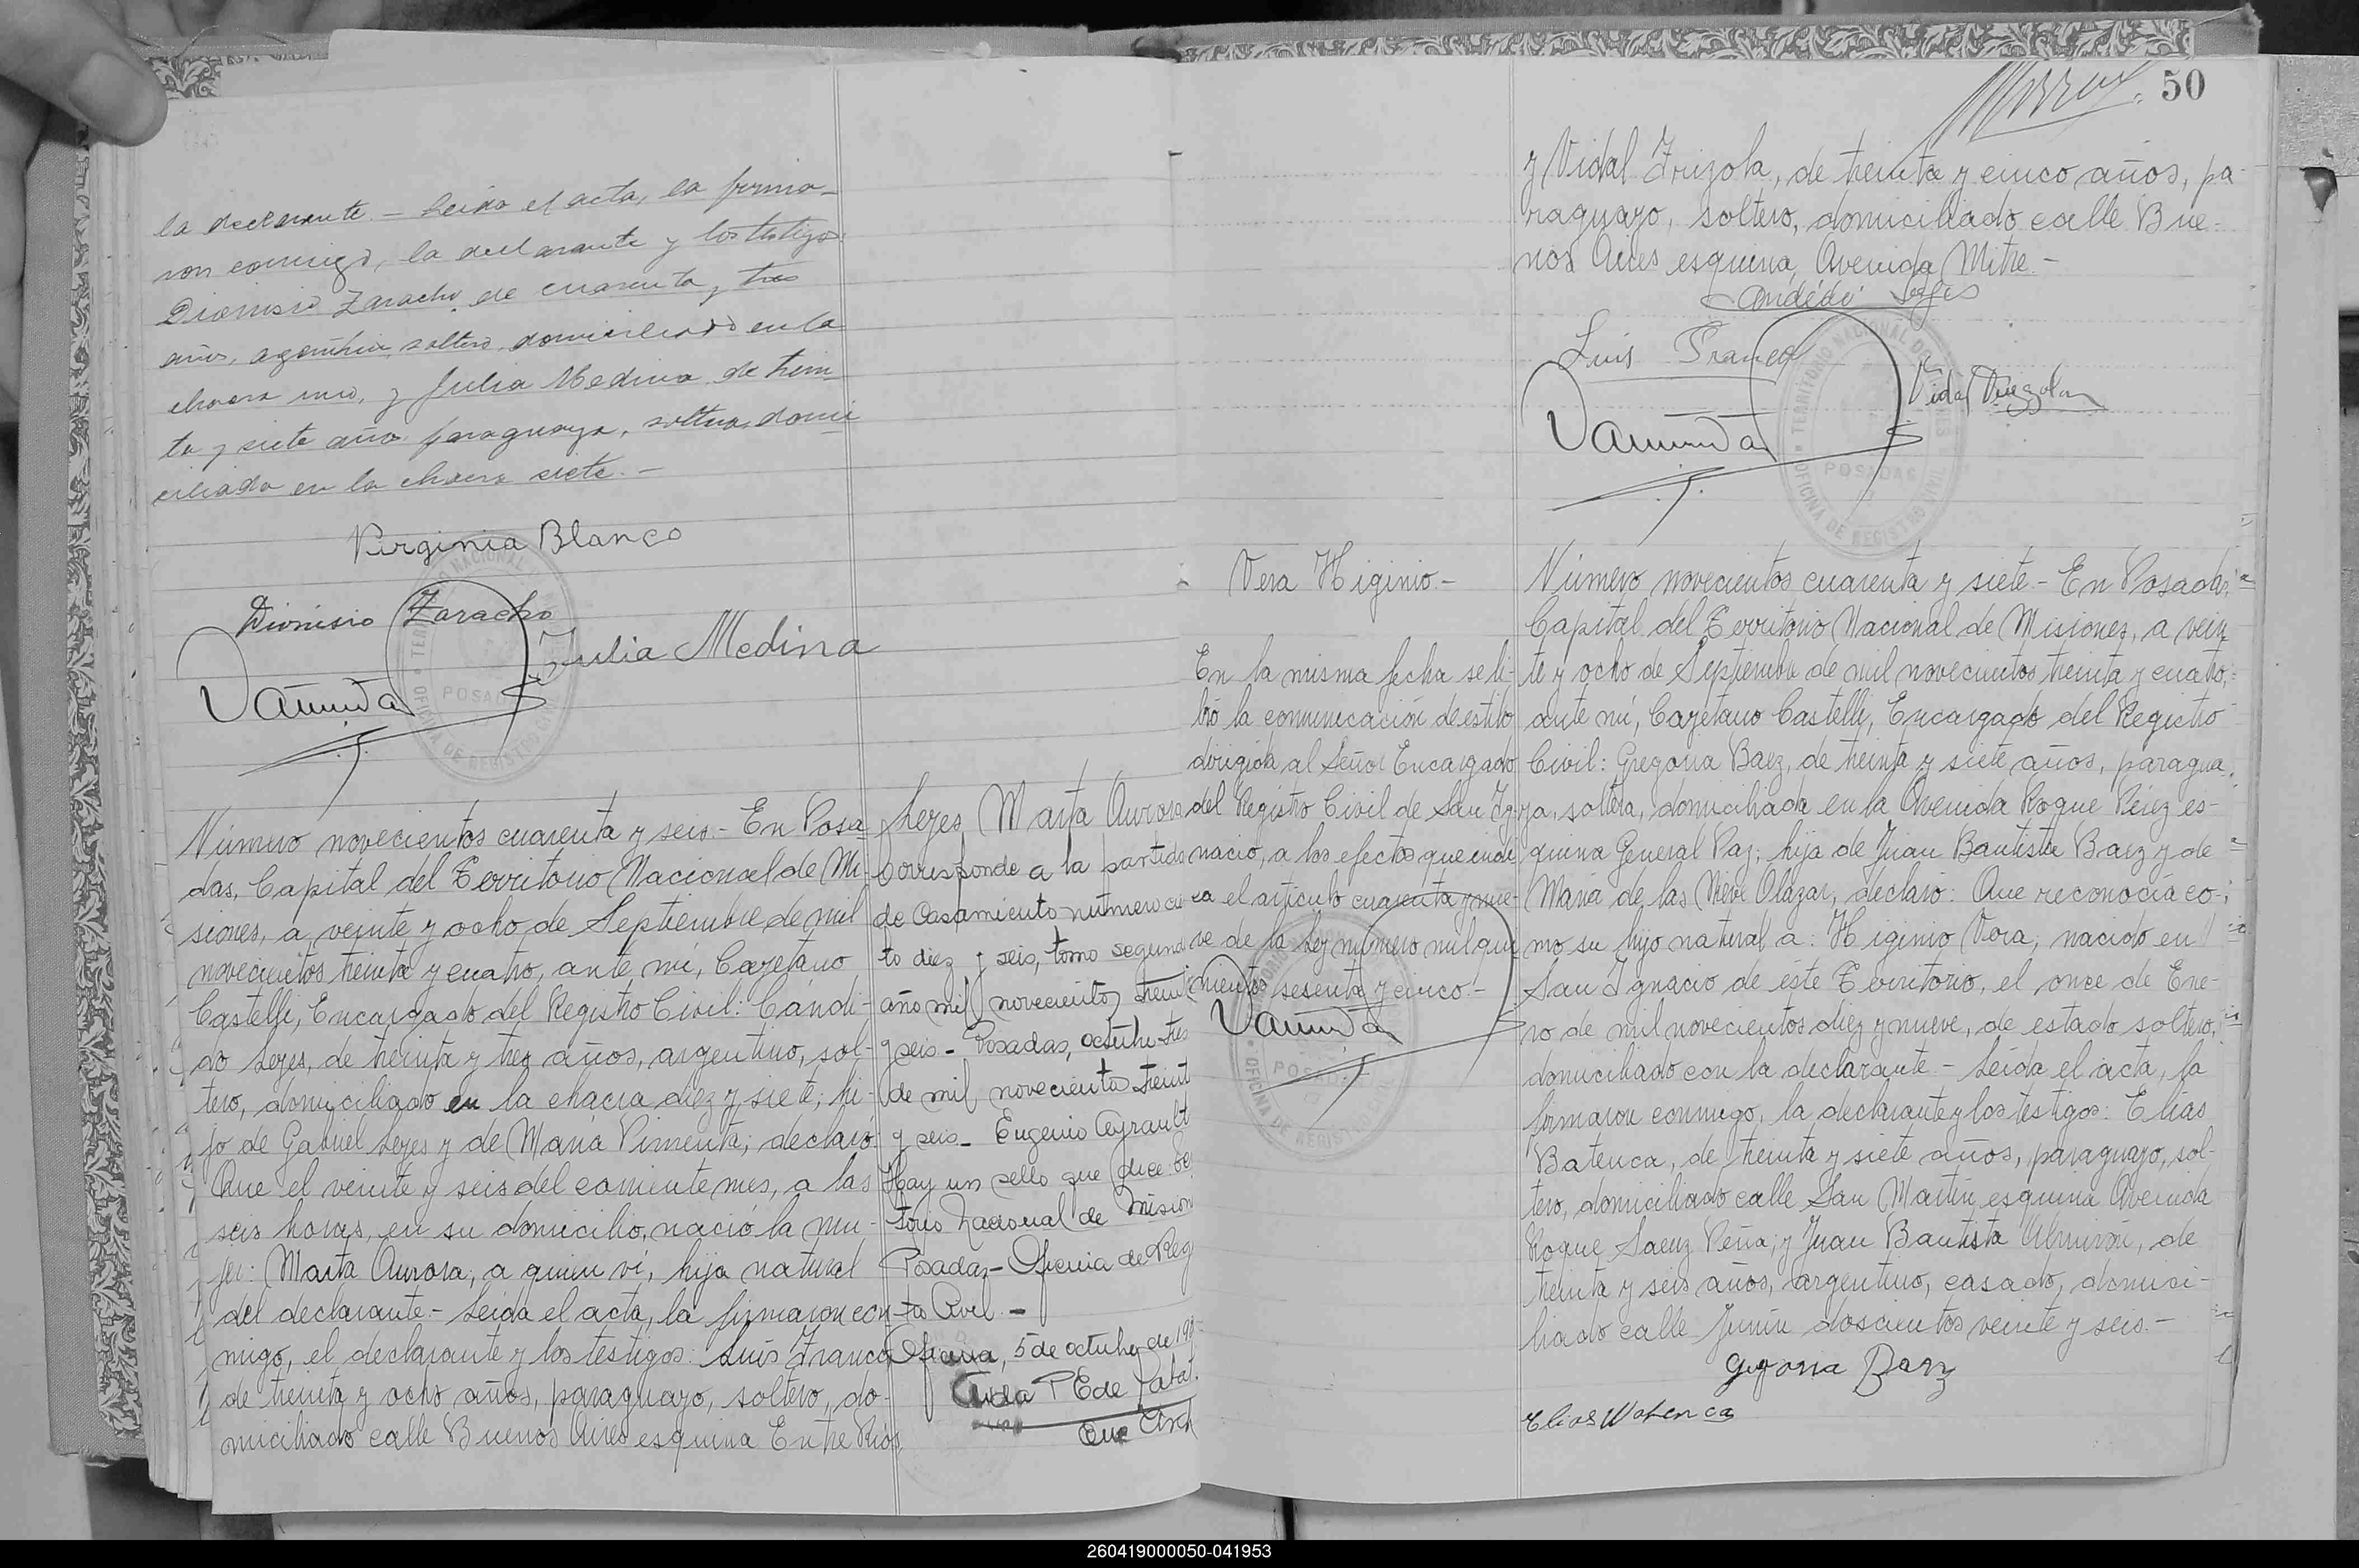 la declarante.- Leída el acta, la firma-
ron conmigo, la declarante y los testigos
Dionisio Zaracho, de cuarenta y tres
años, argentino, soltero, domiciliado en la
chacra uno, y Julia Medina de trein-
ta y siete años paraguaya, soltera, domi-
ciliada en la chacra siete.-
Virginia Blanco
Dionisio Zaracho
Julia Medina
POSADAS
OFICINA DE REGISTRO CIVIL
Número novecientos cuarenta y seis.- En Posa-
das, Capital del Territorio Nacional de Mi-
siones, a veinte y ocho de Septiembre de mil
novecientos treinta y cuatro, ante mí, Cayetano
Castelli, Encargado del Registro Civil: Cándi-
do Leyes, de treinta y tres años, argentino, sol-
tero, domiciliado en la chacra diez y siete; hi-
jo de Gabriel Leyes y de María Pimenta; declaró:
Que el veinte y seis del corriente mes, a las
seis horas, en su domicilio, nació la mu-
jer: Marta Aurora, a quien ví, hija natural
del declarante.- Leída el acta, la firmaron con-
migo, el declarante y los testigos: Luis Franco
de treinta y ocho años, paraguayo, soltero, do-
miciliado calle Buenos Aires esquina Entre Ríos
Leyes Marta Aurora
Corresponde a la partida
de Casamiento número cien
to diez y seis, tomo segund
año mil novecientos trein
y seis.- Posadas, octubre tres
de mil novecientos treint
y seis.- Eugenio Ayrault
Hay un sello que dice
torio Nacional de Mision
Posadas- Oficina de Reg
tro Civil.-
Oficina, 5 de octubre de 19
50
y Vidal Frizola, de treinta y cinco años, pa-
raguayo, soltero, domiciliado calle Bue-
nos Aires esquina, Avenida Mitre.-
Cándido Leyes
Luis Franco
Vidal Frizola
TERRITORIO NACIONAL DE MISIONES
POSADAS
OFICINA DE REGISTRO CIVIL
Vera Higinio.-
En la misma fecha se li-
bró la comunicación de estilo
dirigida al Señor Encargado
del Registro Civil de San Ig-
nacio, a los efectos que indi-
ca el artículo cuarenta y nue-
ve de la Ley número mil qui
nientos sesenta y cinco.-
POSADAS
OFICINA DE REGISTRO CIVIL
Número novecientos cuarenta y siete.- En Posadas,
Capital del Territorio Nacional de Misiones, a vein
te y ocho de Septiembre de mil novecientos treinta y cuatro,
ante mí, Cayetano Castelli, Encargado del Registro
Civil: Gregoria Baez, de treinta y siete años, paragua-
ya, soltera, domiciliada en la Avenida Roque Pérez es-
quina General Paz; hija de Juan Bautista Baez y de
María de las Nieve Olazar; declaró: Que reconocía co-
mo su hijo natural a: Higinio Vera, nacido en
San Ignacio de éste Territorio, el once de Ene-
ro de mil novecientos diez y nueve, de estado soltero,
domiciliado con la declarante.- Leída el acta, la
firmaron conmigo, la declarante y los testigos: Elías
Batenca, de treinta y siete años, paraguayo, sol-
tero, domiciliado calle San Martín esquina Avenida
Roque Saenz Peña; y Juan Bautista Almirón, de
treinta y seis años, argentino, casado, domici-
liado calle Junín doscientos veinte y seis.-
Gregoria Baez
Elias Watenca
260419000050-041953